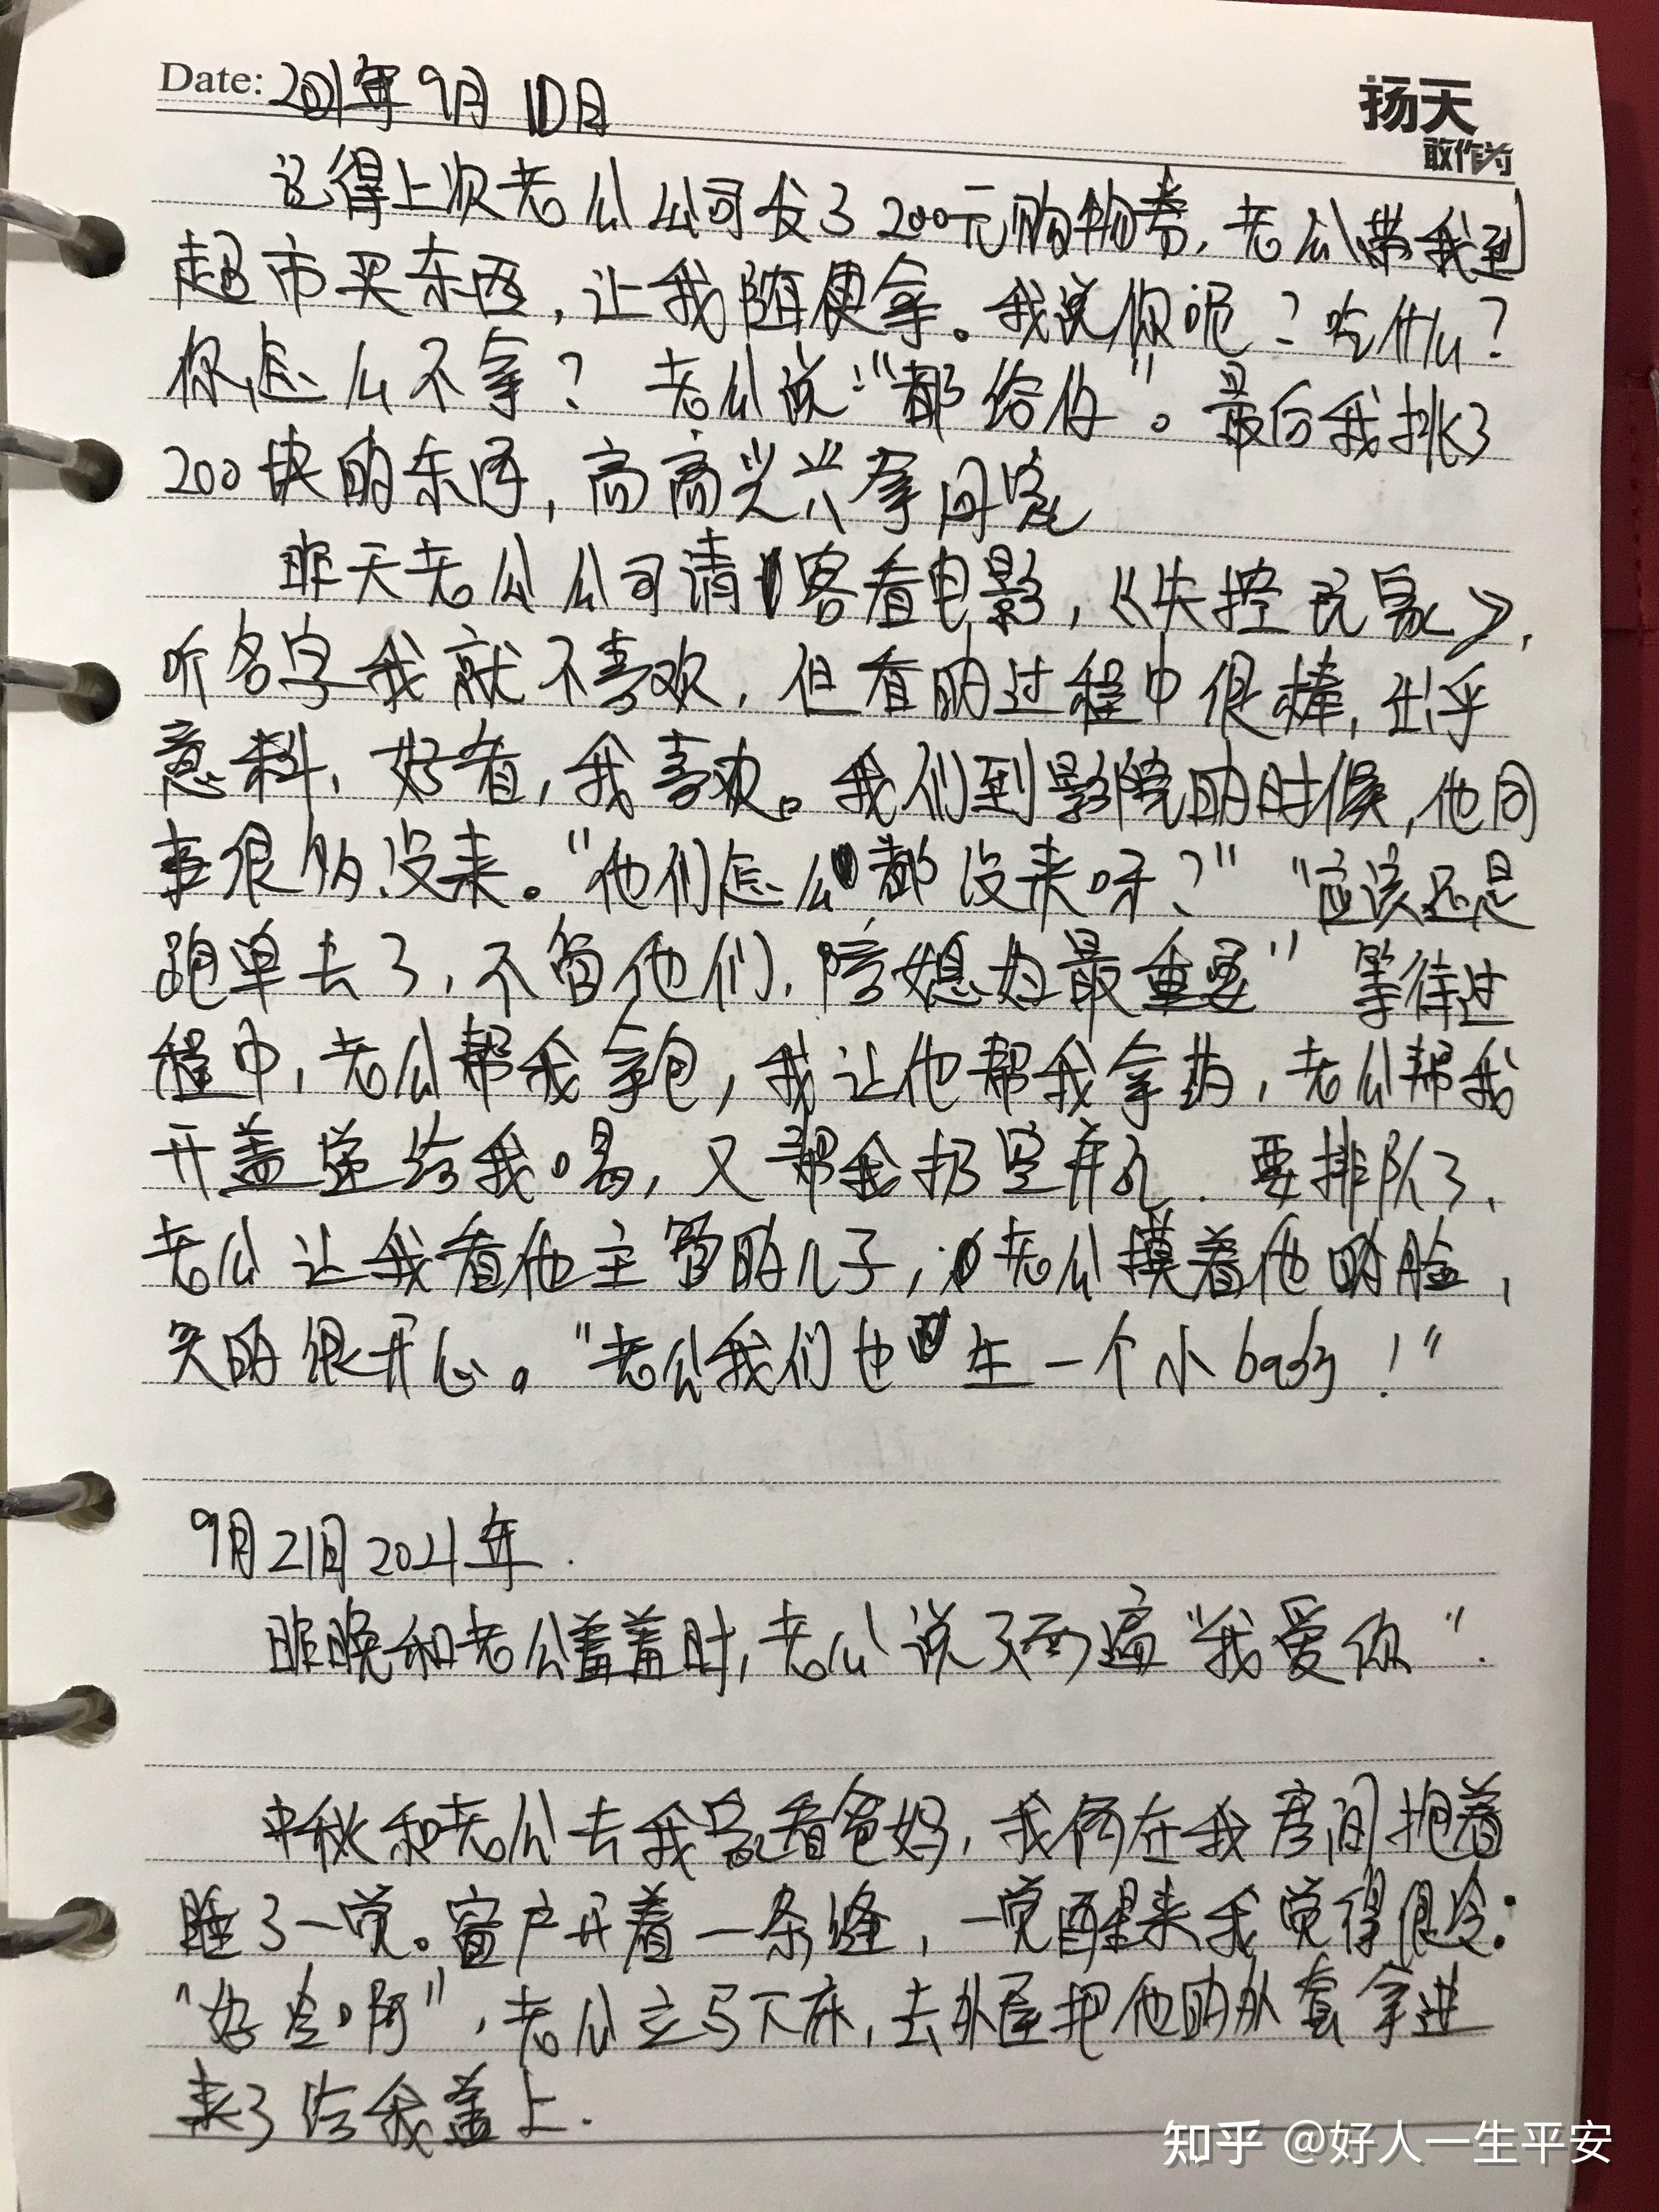 Date: 2021年9月10日
扬天
敢作为
记得上次老公公司发了200元购物券,老公带我到
超市买东西,让我随便拿。我说你呢?吃什么?
你怎么不拿?老公说:“都给你”。最后我挑了
200块的东西,高高兴兴拿回家
昨天老公公司请客看电影,《失控玩家》,
听名字我就不喜欢,但看的过程中很棒,出乎
意料,好看,我喜欢。我们到影院的时候,他同
事很多没来。“他们怎么都没来呀?”“应该还是
跑单去了,不管他们,陪媳妇最重要”等待过
程中,老公帮我拿包,我让他帮我拿药,老公帮我
开盖递给我喝,又帮我扔空瓶儿.要排队了,
老公让我看他主管的儿子,老公摸着他的脸,
笑的很开心。“老公我们也生一个小baby!”
9月21日2021年.
昨晚和老公羞羞时,老公说了两遍“我爱你”.
中秋和老公去我家看爸妈,我俩在我房间抱着
睡了一觉。窗户开着一条缝,一觉醒来我觉得很冷:
“好冷啊”,老公立马下床,去外屋把他的外套拿进
来了给我盖上.
知乎 @好人一生平安